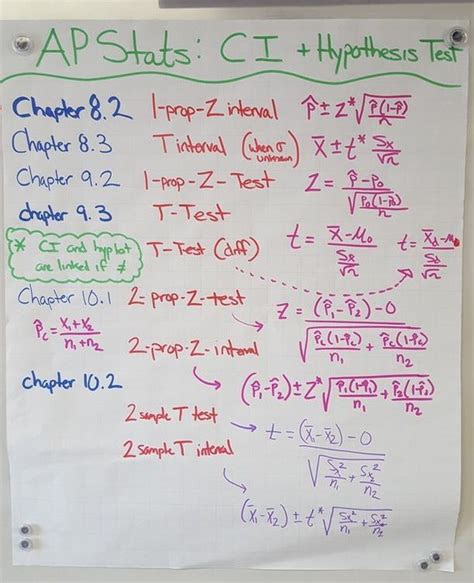 AP Stats: CI + Hypothesis Test
Chapter 8.2 1-prop-Z interval p̂ ± Z* √(p̂(1-p̂)/n)
Chapter 8.3 T interval (when σ unknown) x̄ ± t* Sx/√n
Chapter 9.2 1-prop-Z-Test Z = (p̂ - p₀)/√(p₀(1-p₀)/n)
chapter 9.3 T-Test t = (x̄ - μ₀)/(Sx/√n)
* CI and hyp test are linked if ≠
T-Test (diff) t = (x̄d - μ₀)/(Sd/√n)
Chapter 10.1 2-prop-Z-test Z = ((p̂₁ - p̂₂) - 0)/√(p̂c(1-p̂c)/n₁ + p̂c(1-p̂c)/n₂)
p̂c = (x₁ + x₂)/(n₁ + n₂)
2-prop-Z-interval (p̂₁ - p̂₂) ± Z* √(p̂₁(1-p̂₁)/n₁ + p̂₂(1-p̂₂)/n₂)
chapter 10.2
2 sample T test t = ((x̄₁ - x̄₂) - 0)/√(Sx₁²/n₁ + Sx₂²/n₂)
2 sample T interval
(x̄₁ - x̄₂) ± t* √(Sx₁²/n₁ + Sx₂²/n₂)